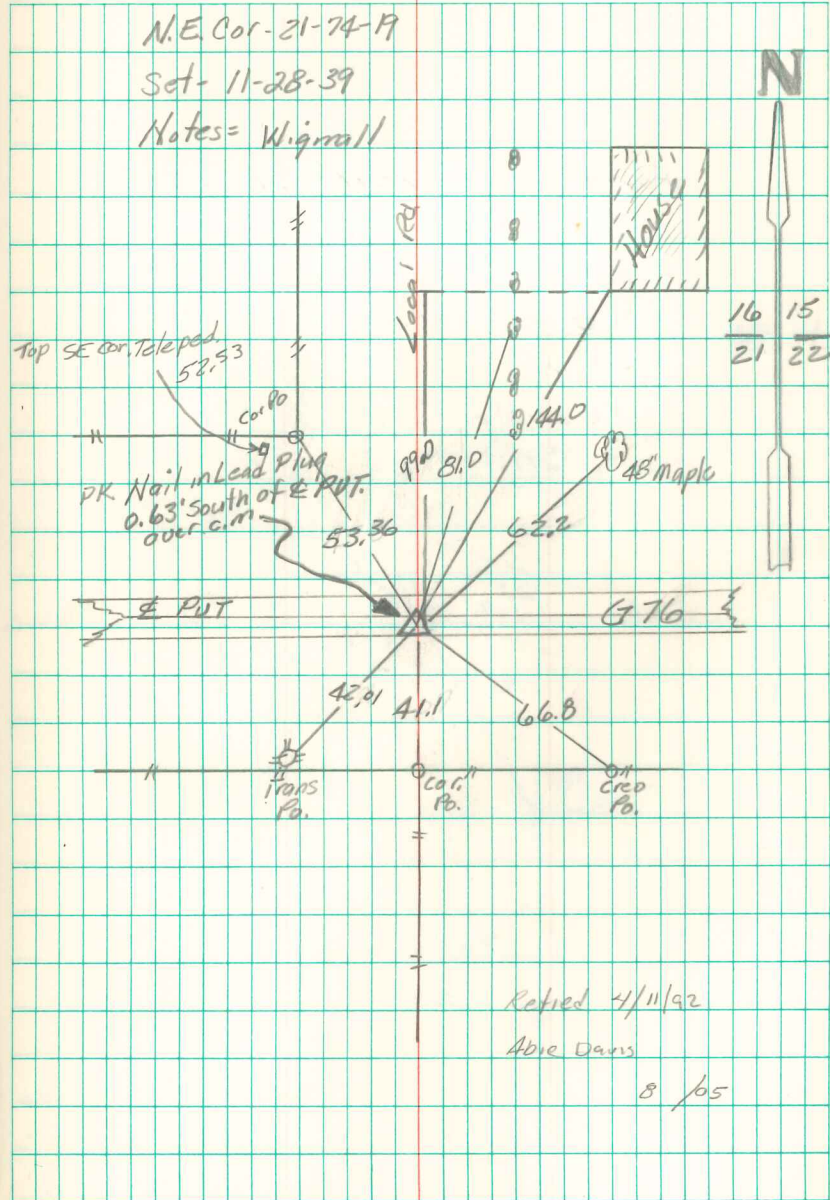 N.E. Cor - 21-74-19
Set - 11-28-39
Notes = Wignall
N
House
Local Rd
16 | 15
21 | 22
Top SE cor. Teleped.
52.53
Cor. Po
PK Nail in Lead Plug
0.63' South of ℄ PVT.
over c.m.
53.36
99.0
81.0
144.0
62.2
48" maple
℄ PVT
G 76
42.01
41.1
66.8
Trans
Po.
Cor.
Po.
Creo
Po.
Retied 4/11/92
Abie Davis
8 /05